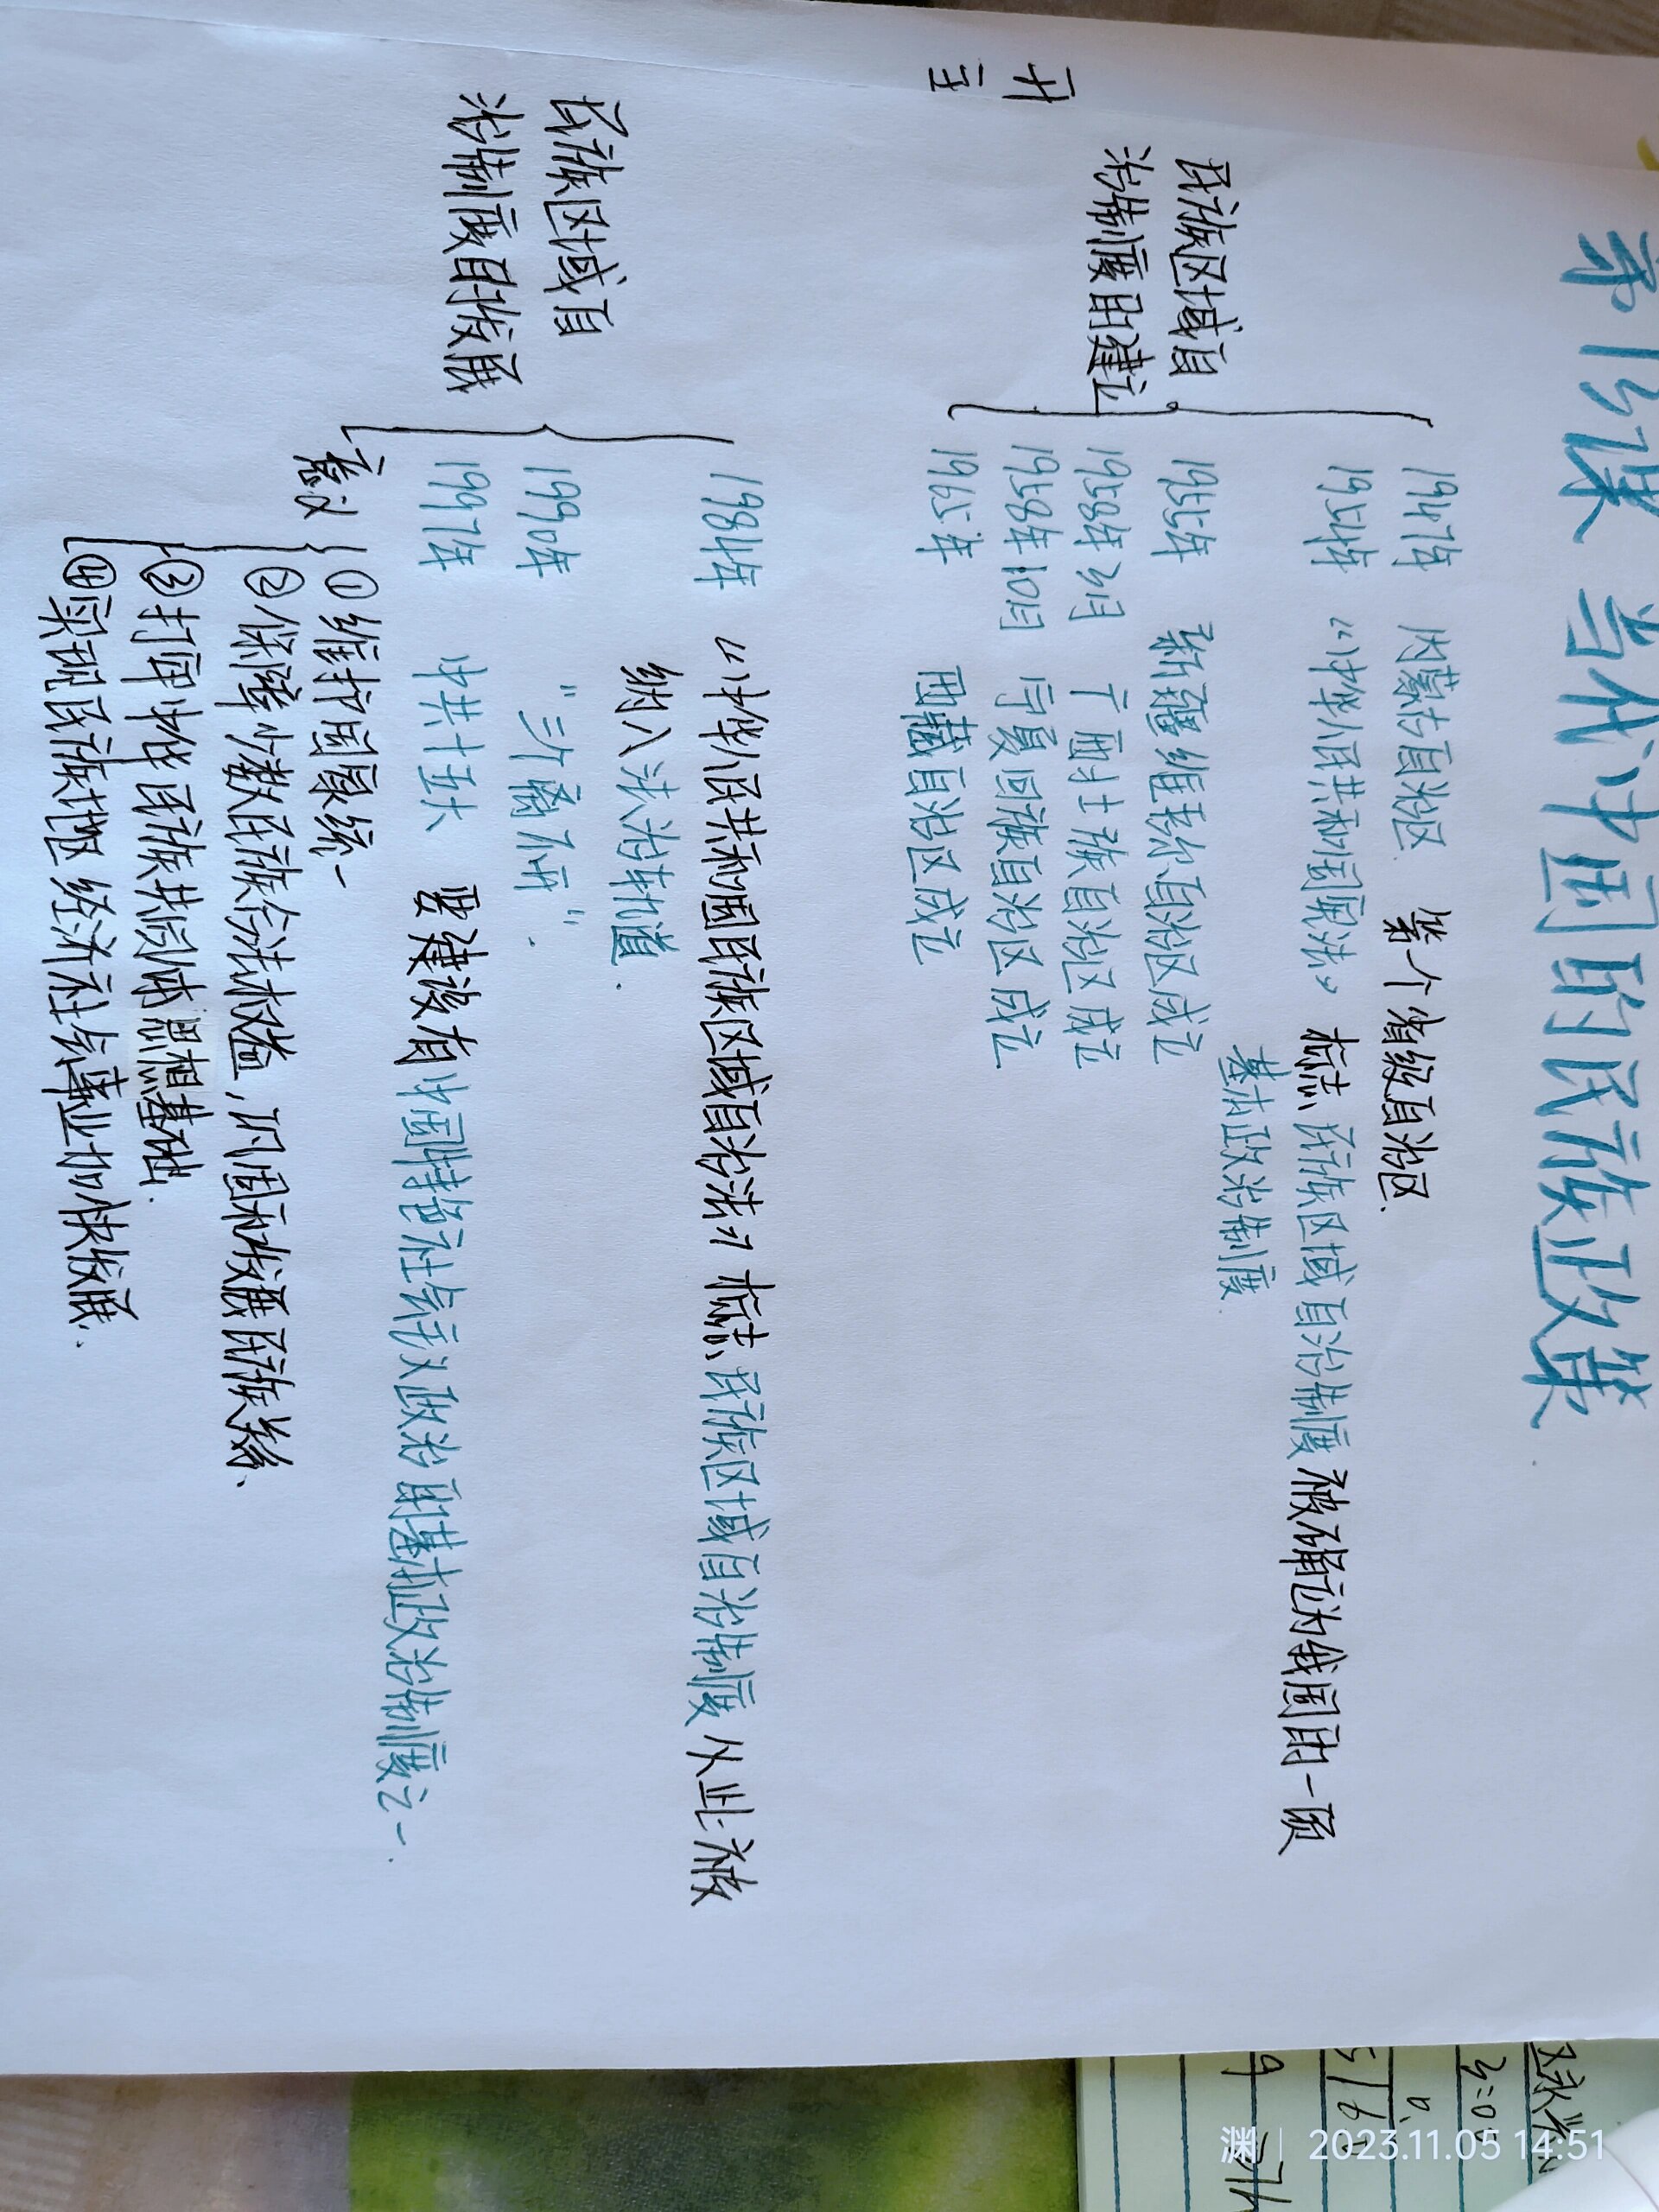 第13课 当代中国的民族政策
民族区域自
治制度的建立
1947年 内蒙古自治区 第一个省级自治区.
1954年 《中华人民共和国宪法》 标志 民族区域自治制度 被确立为我国的一项
基本政治制度.
1955年 新疆维吾尔自治区成立
1958年3月 广西壮族自治区成立
1958年10月 宁夏回族自治区成立
1965年 西藏自治区成立
民族区域自
治制度的发展
1984年 《中华人民共和国民族区域自治法》 标志 民族区域自治制度 从此被
纳入法治轨道.
1990年 "三个离不开".
1997年 中共十五大 要建设有中国特色社会主义政治的基本政治制度之一.
意义
①维护国家统一
②保障少数民族合法权益,巩固和发展民族关系.
③打牢中华民族共同体思想基础.
④实现民族地区经济社会事业加快发展.
渊 2023.11.05 14:51